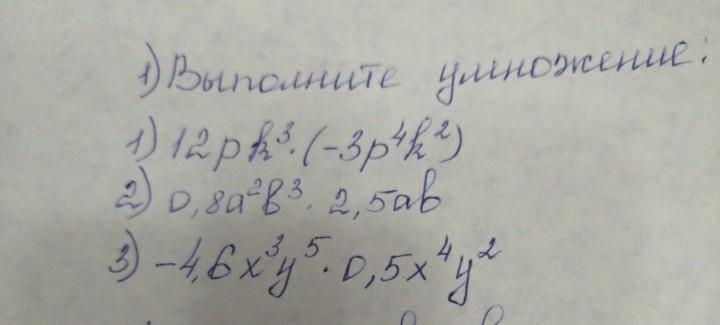 1) Выполните умножение:
1) 12pk³·(-3p⁴k²)
2) 0,8a²b³·2,5ab
3) -4,6x³y⁵·0,5x⁴y²